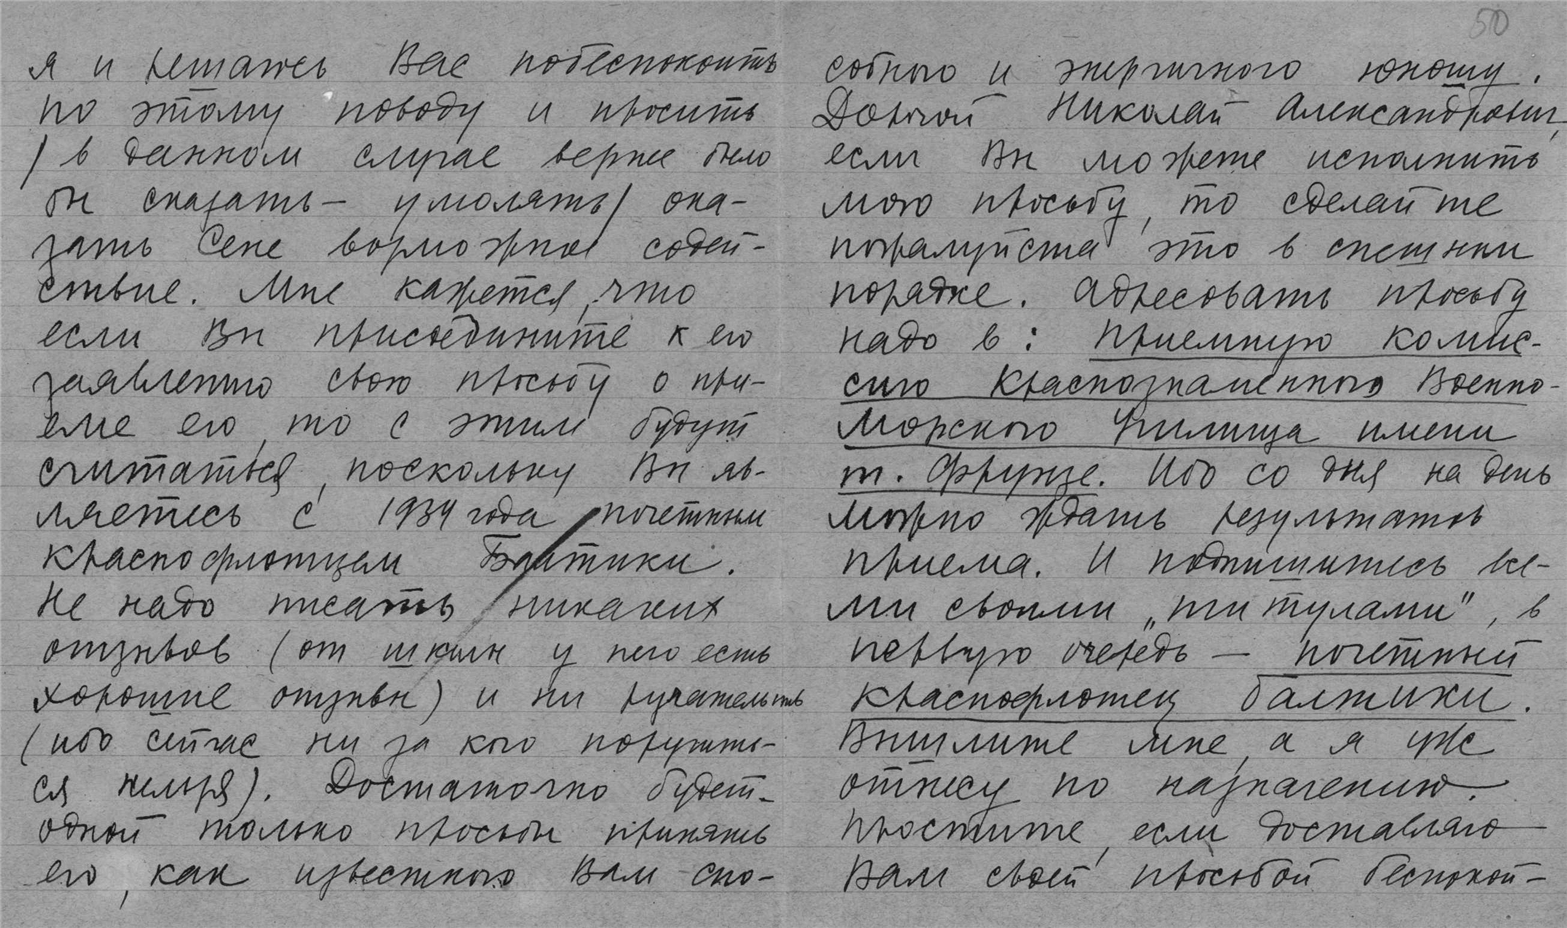 я и решаюсь Вас побеспокоить
по этому поводу и просить
/в данном случае вернее было
бы сказать — умолять/ ока-
зать Сене возможное содей-
ствие. Мне кажется, что
если Вы присоедините к его
заявлению свою просьбу о при-
еме его, то с этим будут
считаться, поскольку Вы яв-
ляетесь с 1934 года почетным
краснофлотцем Балтики.
Не надо писать никаких
отзывов (от школы у него есть
хорошие отзывы) и ни ручательств
(ибо сейчас ни за кого поручить-
ся нельзя). Достаточно будет
одной только просьбы принять
его, как известного Вам спо-
50
собного и энергичного юношу.
Дорогой Николай Александрович,
если Вы можете исполнить
мою просьбу, то сделайте
пожалуйста это в спешном
порядке. Адресовать просьбу
надо в: приемную комис-
сию Краснознаменного Военно-
Морского Училища имени
т. Фрунзе. Ибо со дня на день
можно ждать результатов
приема. И подпишитесь все-
ми своими „титулами", в
первую очередь — почетный
краснофлотец Балтики.
Вышлите мне, а я уже
отнесу по назначению.
Простите, если доставляю
Вам своей просьбой беспокой-